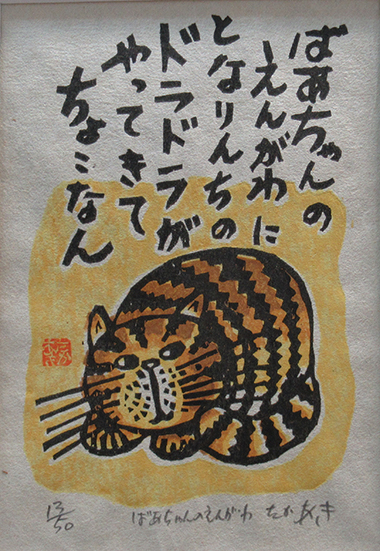 ばあちゃんの
えんがわに
となりんちの
ドラドラが
やってきて
ちょこなん
ばあちゃんのえんがわ